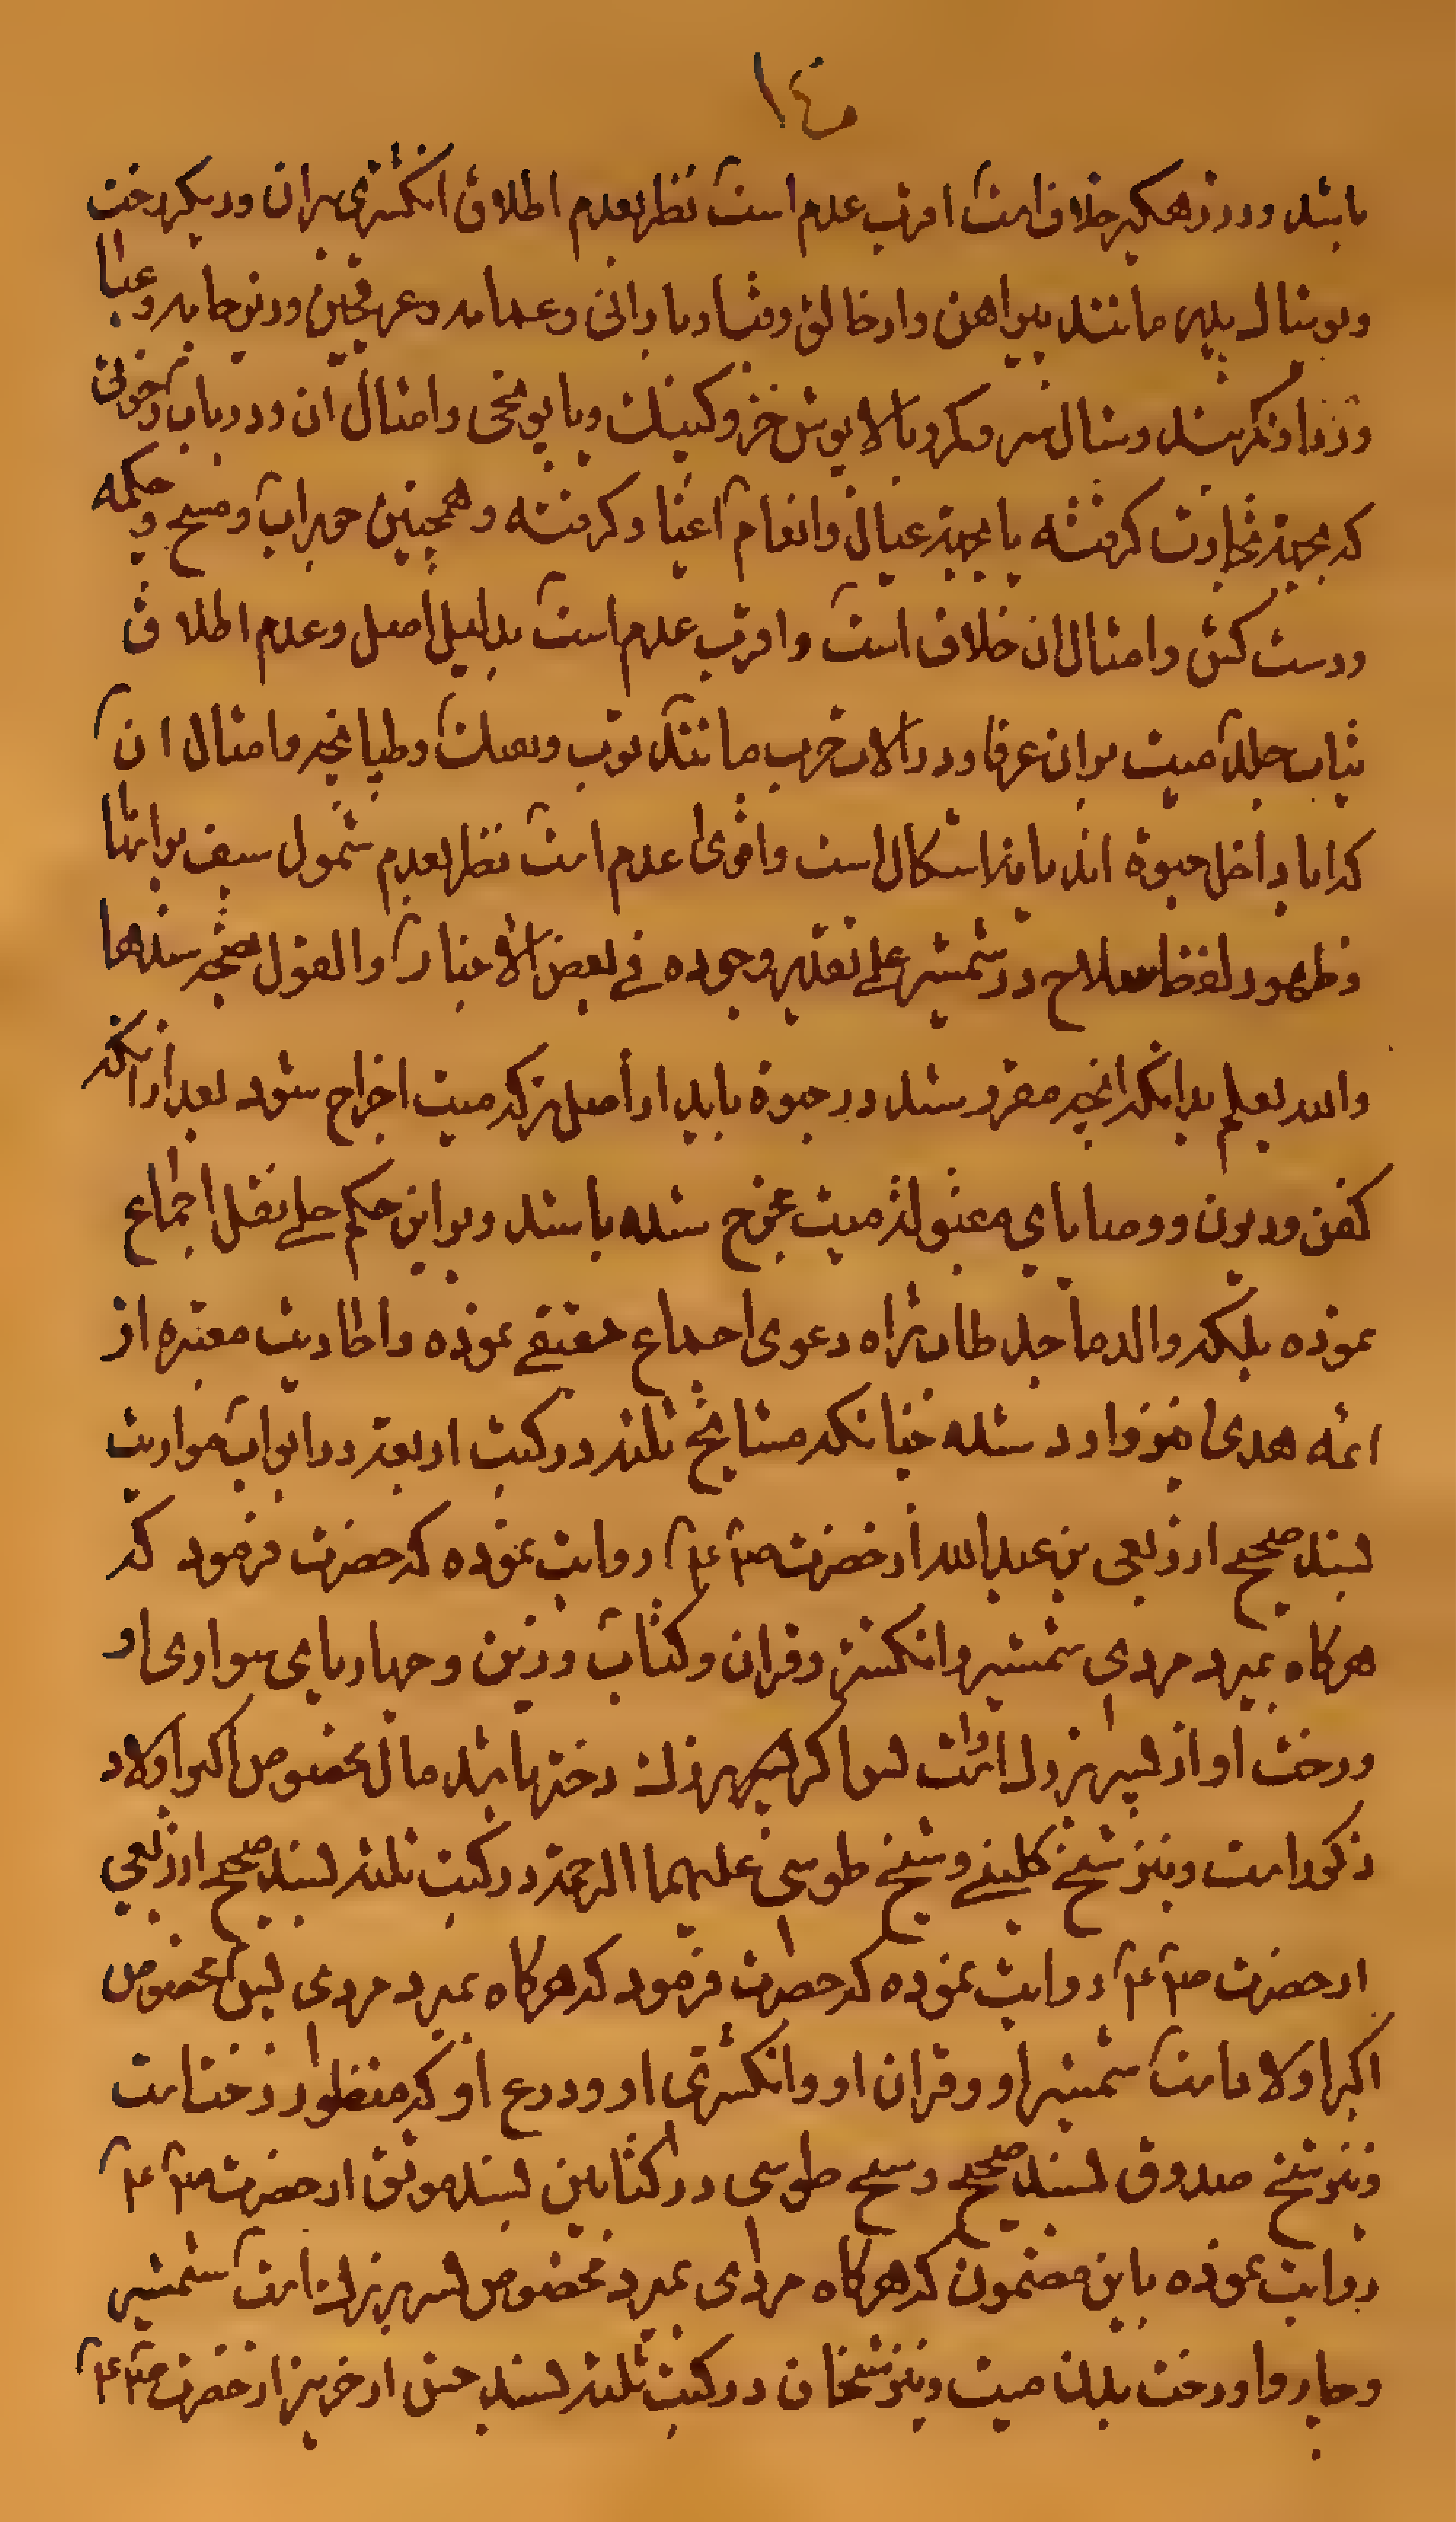 ١٤
باشد ودر زهكير خلاف است اقرب عدم است نظر بعدم اطلاق انكشترى بران وديكر رخت
وپوشاك بدن مانند پيراهن وارخالق وقبا وبارانى وعمامه وعرقچين وزير جامه وعبا
وردا وكمربند وشال سر وكمر وبالاپوش خز وكپنك وپاپونچى وامثال ان ودر باب رخوتى
كه بجهة تجارت كرفته يا بجهة عيال وانعام اغيار كرفته وهمچنين جوراب ومسح وچكمه
ودست كش وامثال ان خلاف است واقرب عدم است بدليل اصل وعدم اطلاق
ثياب جلد ميت بران عرفا ودر الات حرب مانند توپ وتفنك وطپانچه وامثال ان
كه ايا داخل حبوة اند يا نه اشكال است واقوى عدم است نظر بعدم شمول سيف برانها
وظهور لفظ سلاح در شمشير على تقدير وجوده فى بعض الاخبار والقول بصحة سندها
والله يعلم بدانكه انچه مقرر شد در حبوة بايد از اصل تركه ميت اخراج شود بعد ازانكه
كفن وديون ووصاياى مقبوله ميت مخرج شده باشد وبر اين حكم جلى نقل اجماع
نموده بلكه والد ماجد طاب ثراه دعوى اجماع حقيقى نموده واحاديث معتبره از
ائمه هدى نيز وارد شده چنانكه مشايخ ثلثه در كتب اربعه در ابواب مواريث
بسند صحيح از ربعى بن عبدالله از حضرت ص ع روايت نموده كه حضرت فرمود كه
هركاه بميرد مردى شمشير وانكشتر وقران وكتاب وزين وچهارپاى سوارى او
ورخت او از پسر بزرك است پس اكر پسر بزرك دختر باشد مال مخصوص اكبر اولاد
ذكور است ونيز شيخ كلينى وشيخ طوسى عليهما الرحمة در كتب ثلثه بسند صحيح از ربعى
از حضرت ص ع روايت نموده كه حضرت فرمود كه هركاه بميرد مردى پس مخصوص
اكبر اولاد است شمشير او وقران او وانكشترى او ودرع او كه منظور رخت است
ونيز شيخ صدوق بسند صحيح وشيخ طوسى در كتابين بسند موثق از حضرت ص ع
روايت نموده باين مضمون كه هركاه مردى بميرد مخصوص پسر بزرك است شمشير
وچاروا ورخت بدن ميت ونيز شيخان در كتب ثلثه بسند حسن از حريز از حضرت ص ع